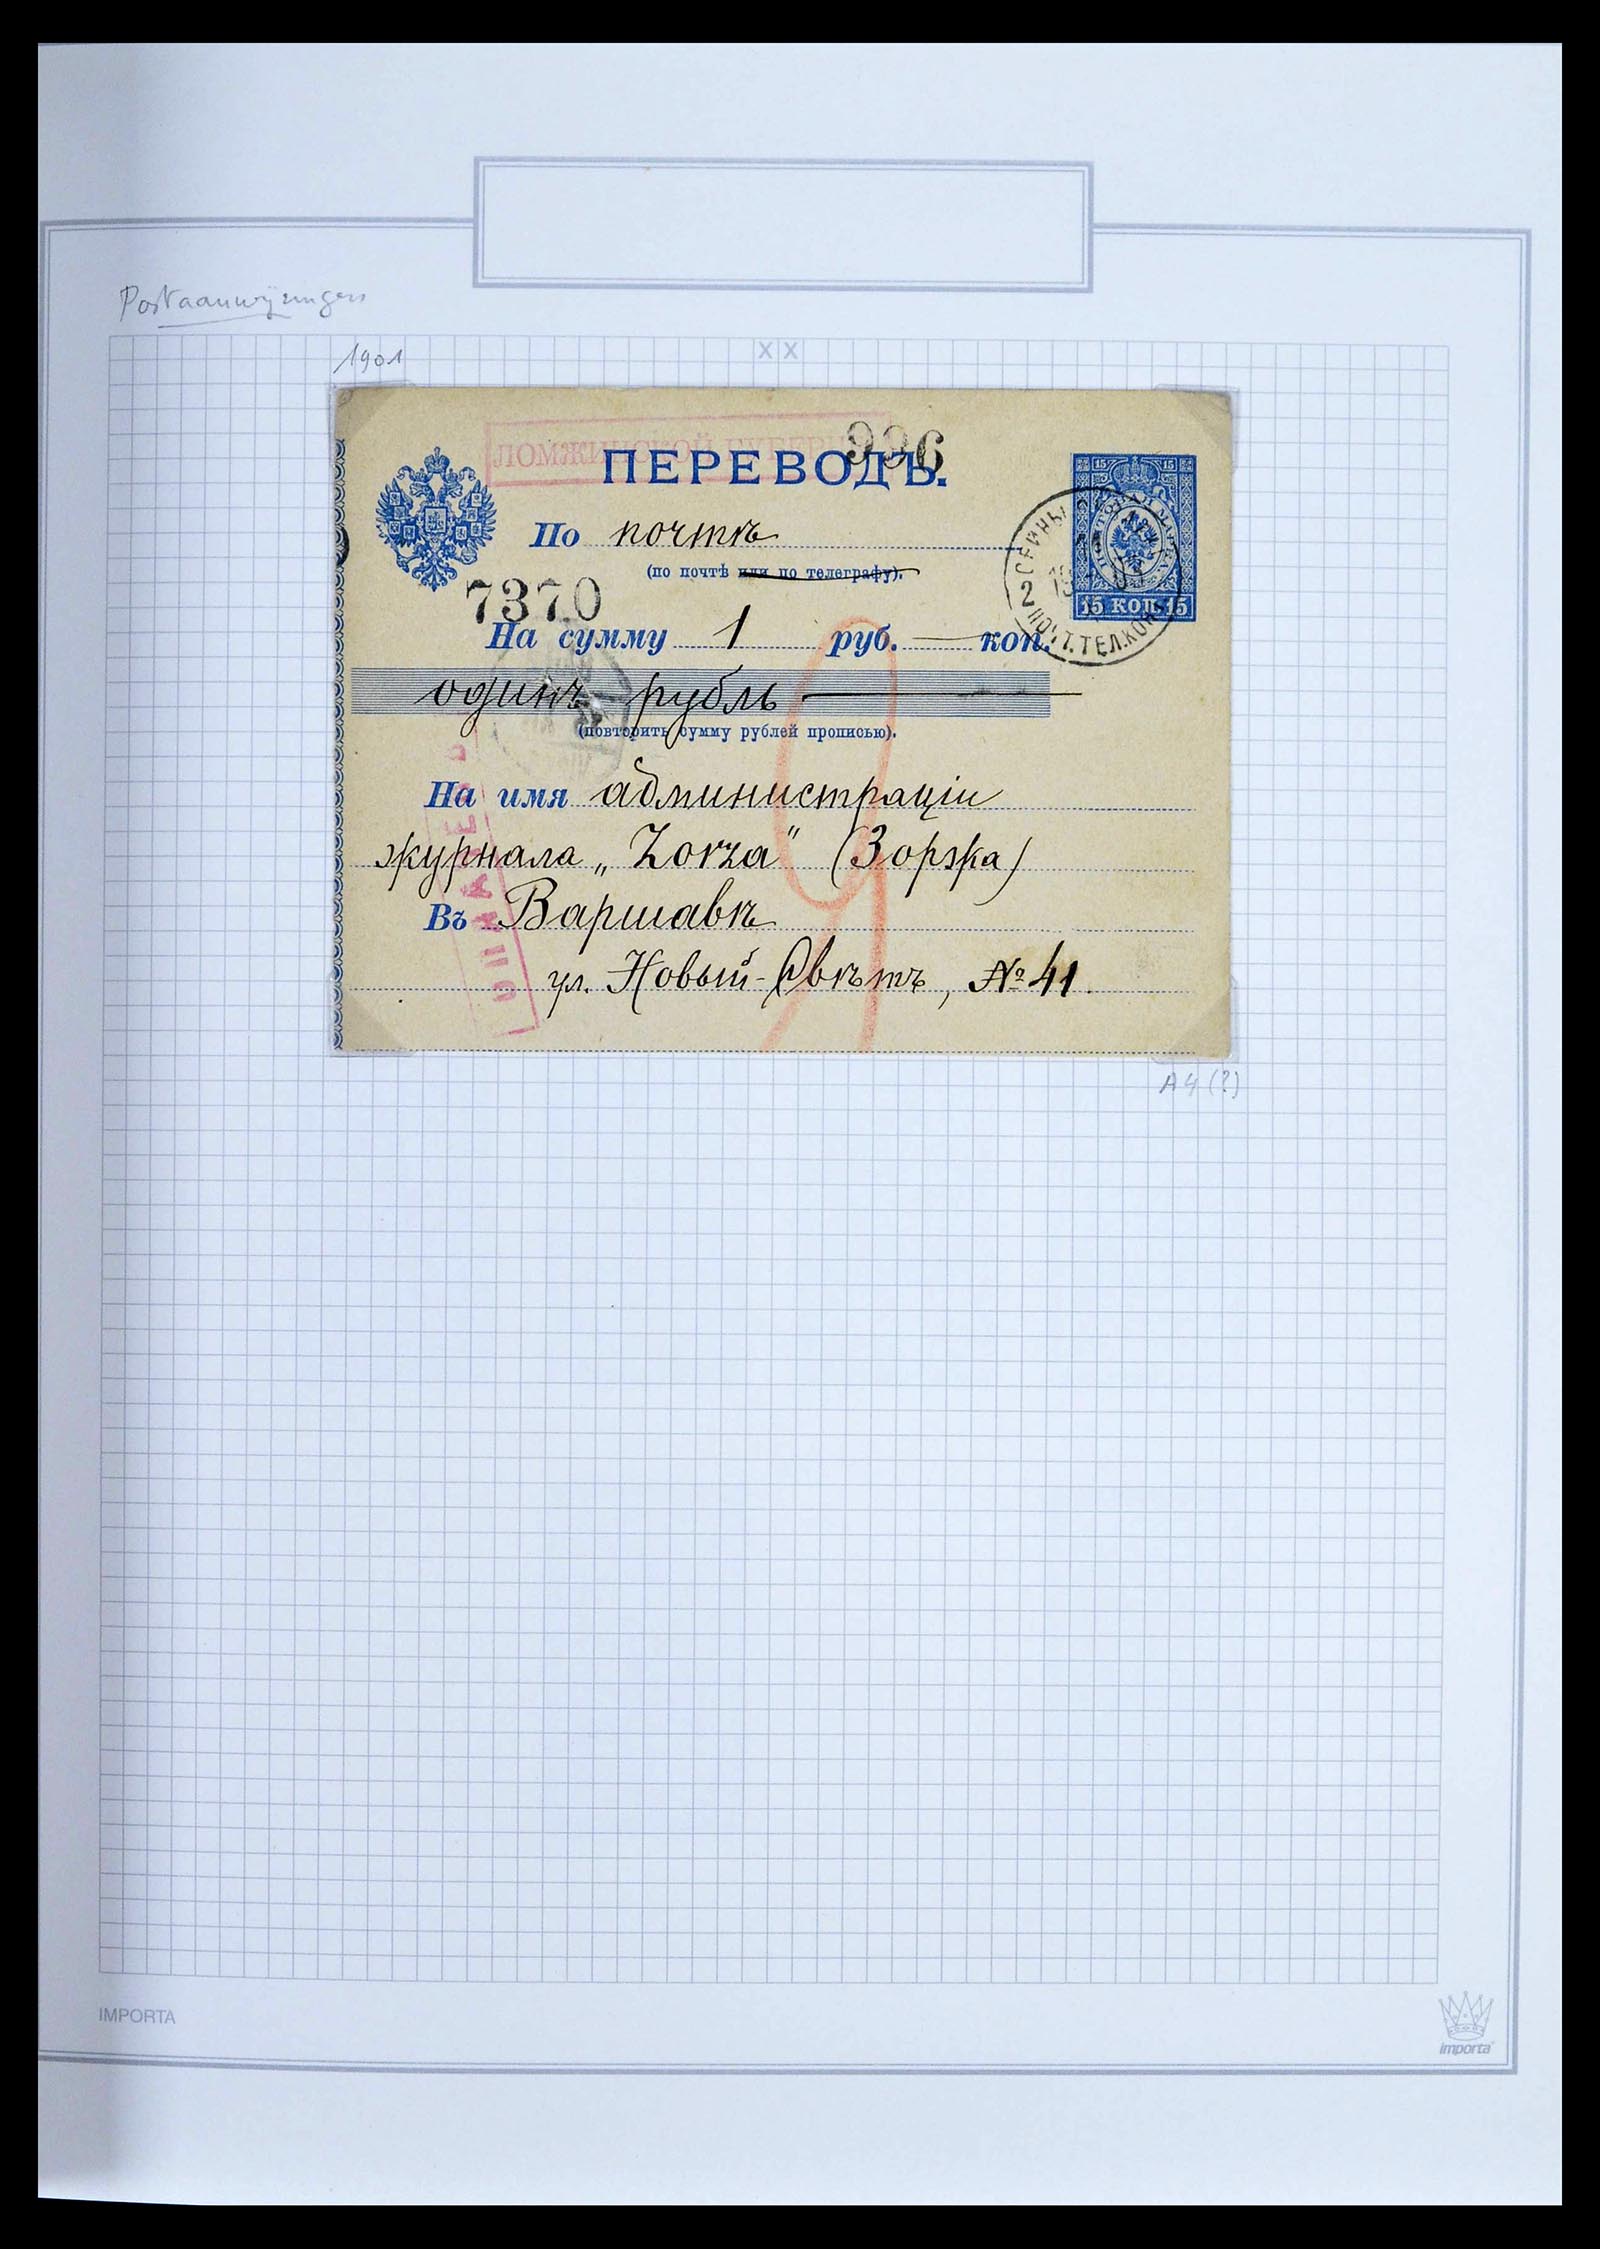 Postaanwijzingen
1901
XX
ЛОМЖИНСКОЙ ГУБЕРН
996
ПЕРЕВОДЪ.
15 15
По почтѣ
(по почтѣ или по телеграфу).
7370
2 ПОЧТ. ТЕЛ. КОН
15 КОП 15
На сумму 1 руб. — коп.
одинъ рубль
(повторить сумму рублей прописью).
На имя администраціи
журнала „Zorza" (Зоржа)
Въ Варшавѣ
ул. Новый-Свѣтъ, № 41.
A4 (?)
IMPORTA
importa